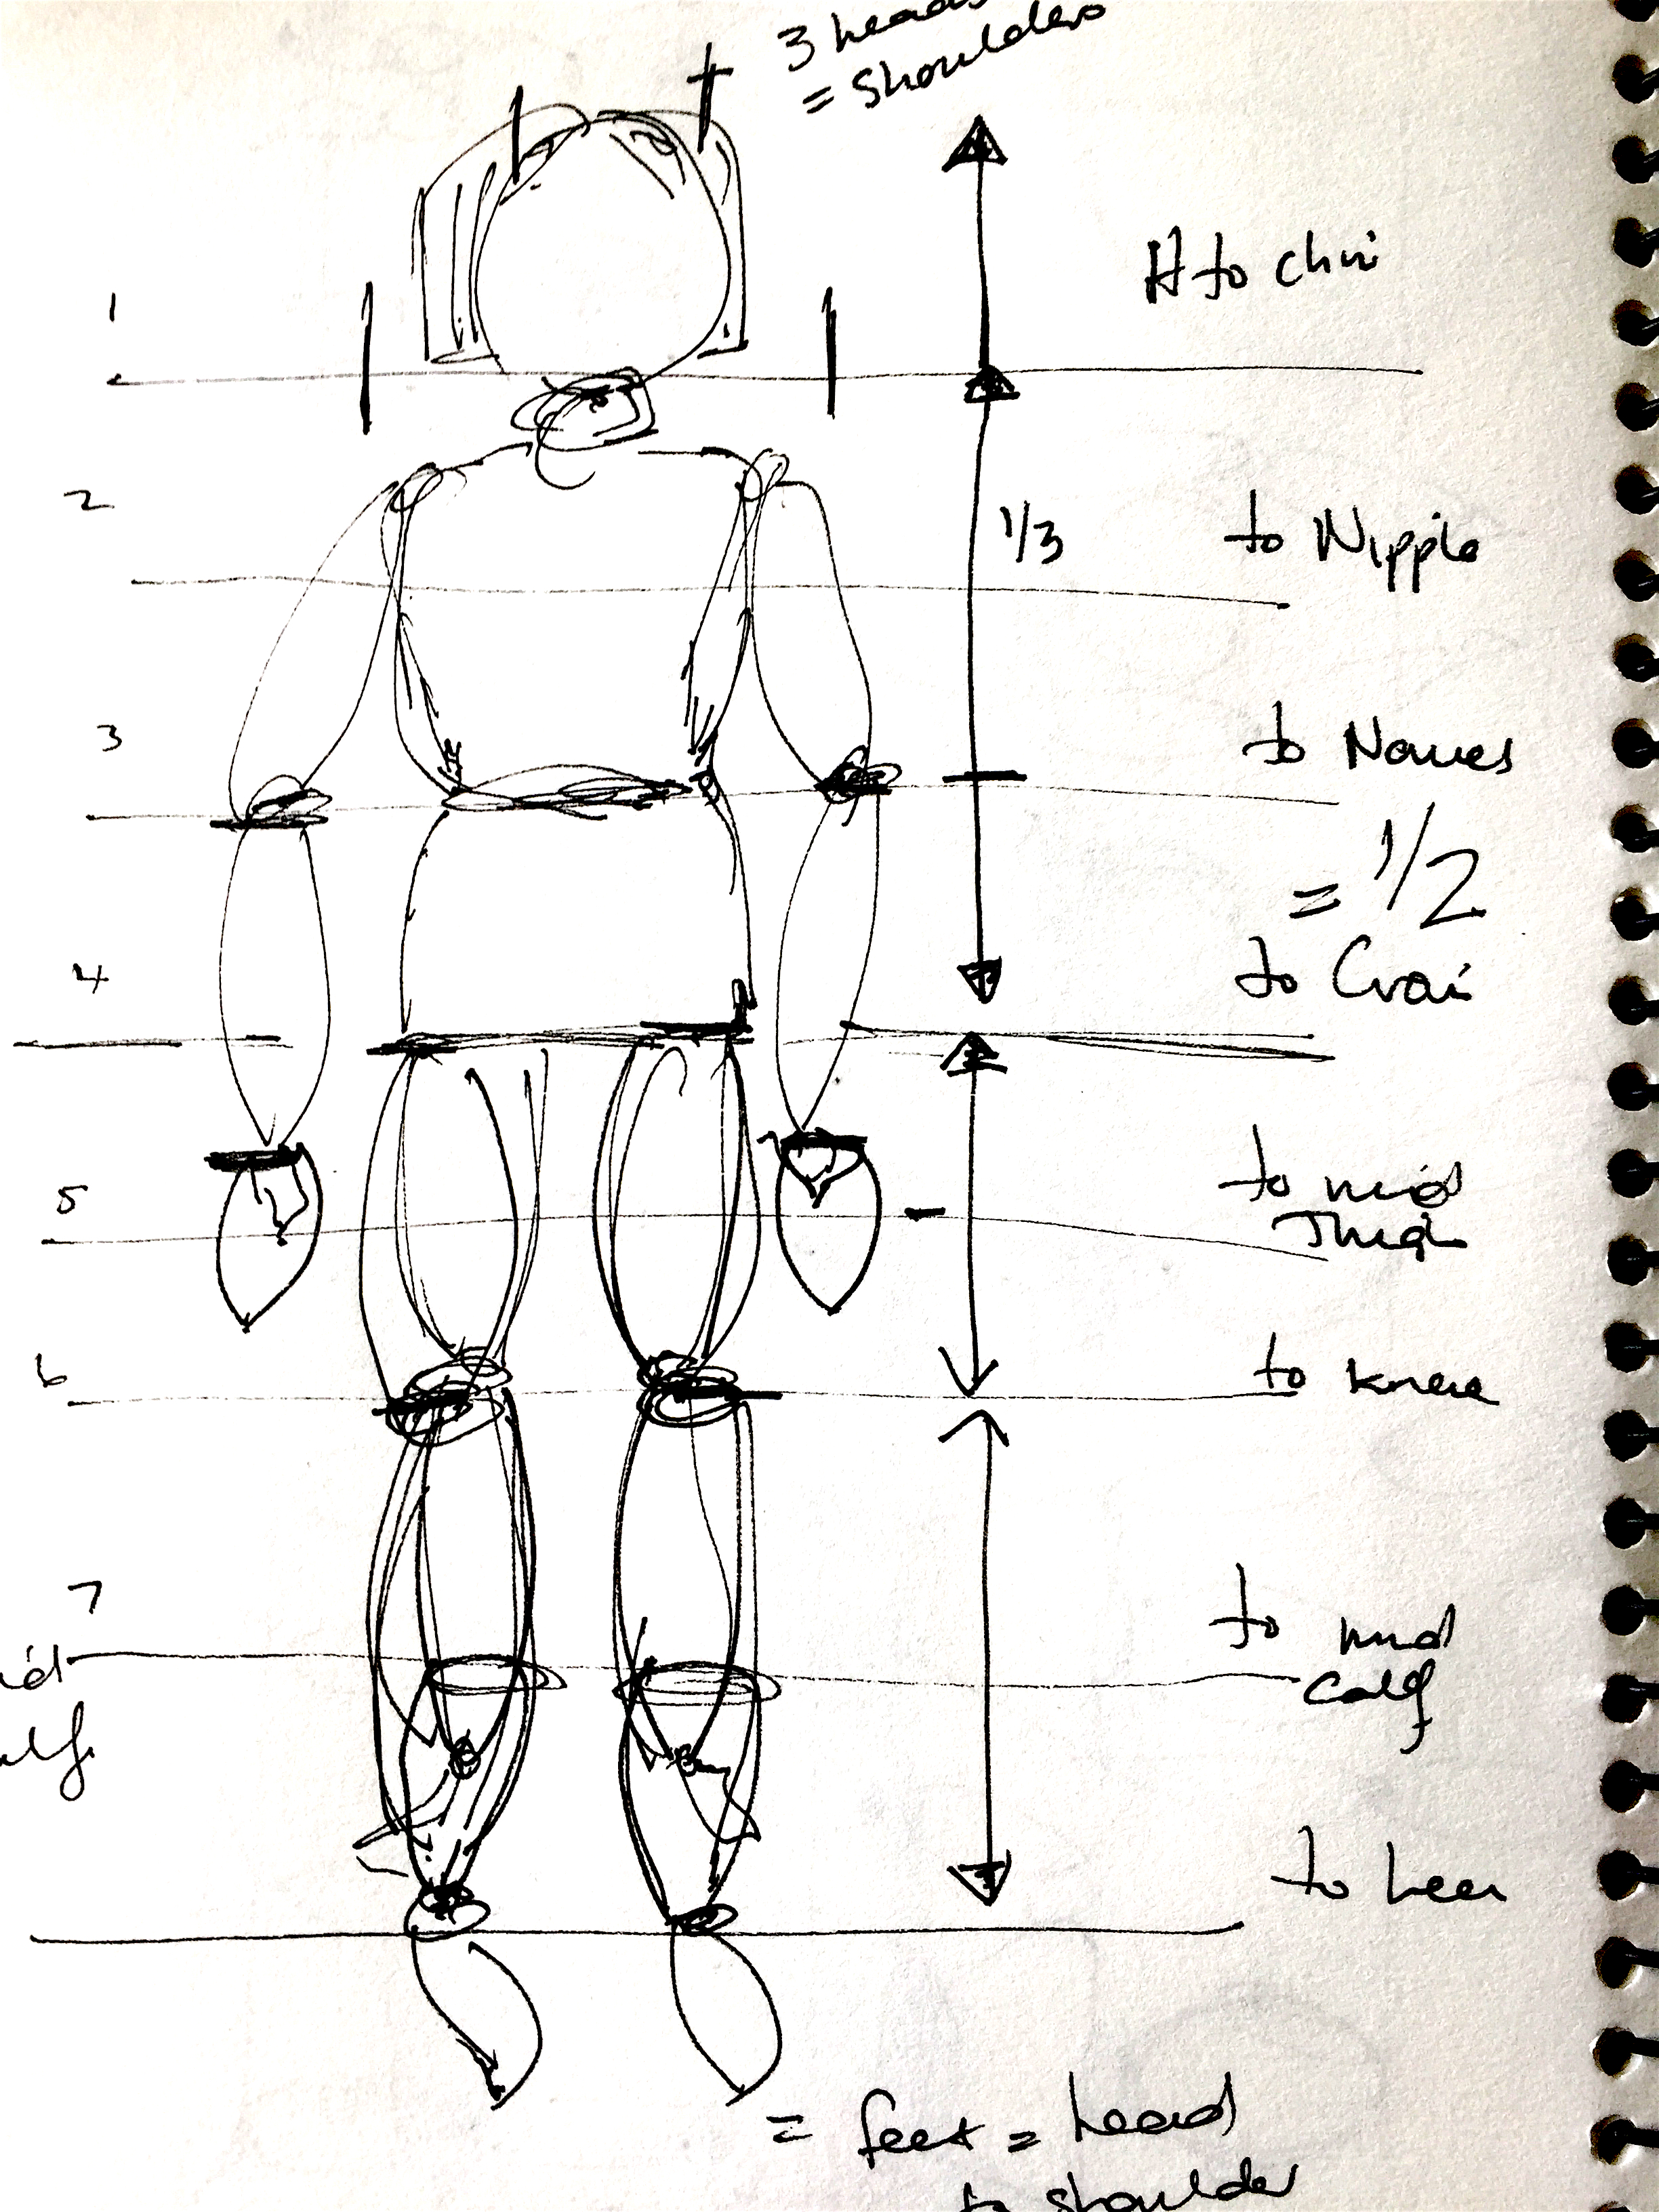 3 heads
= shoulders
1
H to chin
2
1/3
to Nipple
3
to Naves
= 1/2
4
to
5
to mid
Thigh
6
to knee
7
to mid
calf
to heel
= feet = head
to shoulder